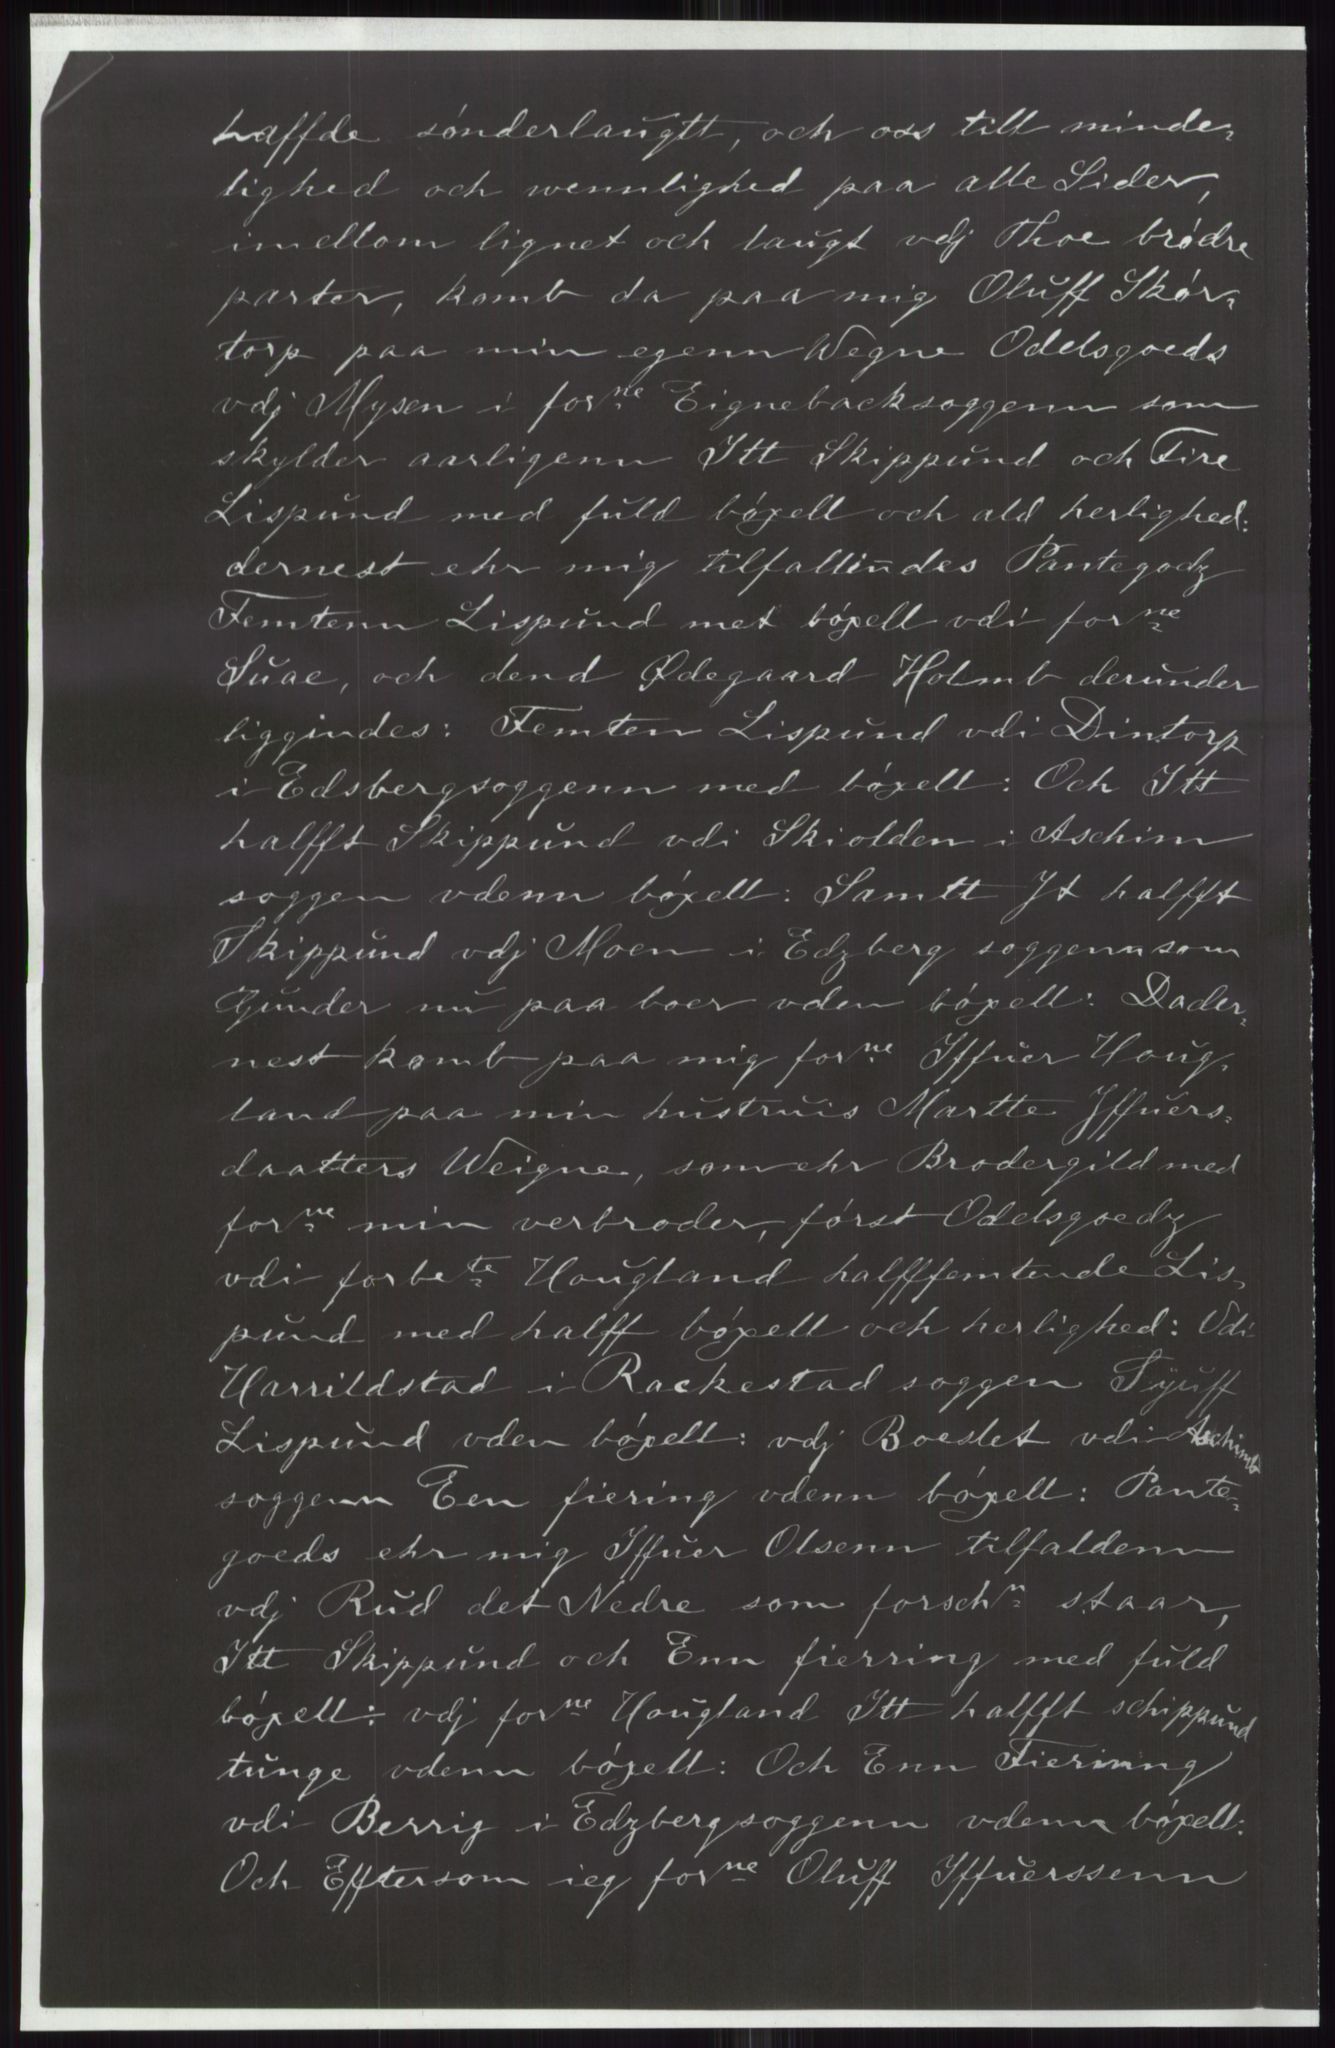 haffde sønderlaugtt, och oss till minde-
lighed och wennlighed paa alle Sider,
imellom lignet och laugt vdj Thoe brødre
parter, komb da paa mig Oluff Skør-
torp paa min egenn Wegne Odelsgoeds
vdj Mysen i forne Eignebacksoggenn som
skylder aarligenn Itt Skippund och Fire
Lispund med fuld bøxell och ald herlighed:
dernest ehr mig tilfallindes Pantegodz
Femtenn Lispund met bøxell vdi forne
Suae, och dend Ødegaard Holmb derunder
liggindes: Femten Lispund vdi Dintorp
i Edsbergsoggenn med bøxell: Och Itt
halfft Skippund vdi Skiolden i Aschim
soggen vdenn bøxell: Samtt Jt halfft
Skippund vdj Moen i Edzberg soggenn som
Gunder nu paa boer vden bøxell: Dader-
nest komb paa mig forne Iffuer Houg-
land paa min hustruis Martte Iffuers-
daatters Weigne, som ehr Brodergild med
forne min verbroder, først Odelsgoedz
vdi forbete Hougland halfffemtende Lis-
pund med halff bøxell och herlighed: Vdi
Harrildstad i Rackestad soggen Tyuff
Lispund vden bøxell: vdj Boeslet vdi Aschimb
soggenn Een fiering vdenn bøxell: Pante-
goeds ehr mig Iffuer Olsenn tilfaldenn
vdj Rud det Nedre som forschn staar,
Itt Skippund och Enn fierring med fuld
bøxell: vdj forne Hougland Itt halfft schippund
tunge vdenn bøxell: Och Enn Fierinng
vdi Berrig i Edzbergsoggenn vdenn bøxell:
Och Efftersom ieg forne Oluff Iffuerssenn